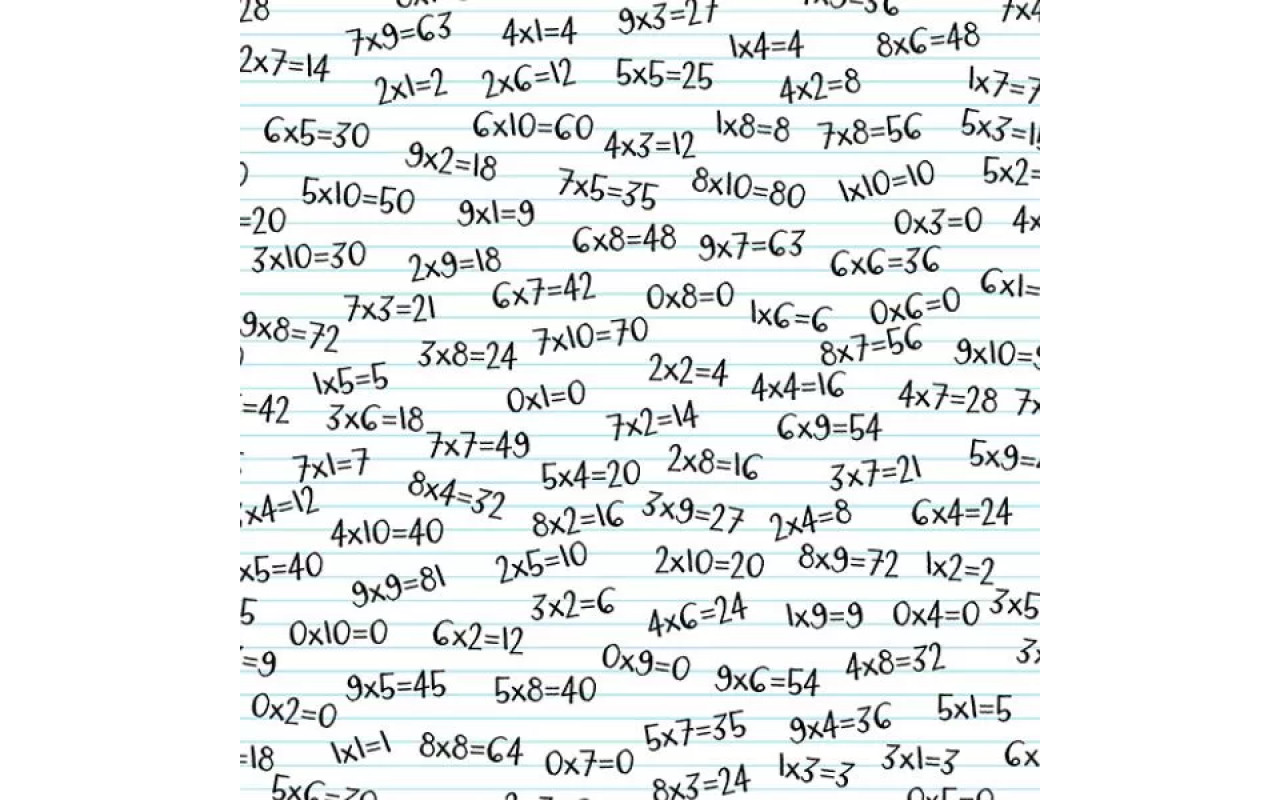 28
9x3=27
7x4
7x9=63
4x1=4
1x4=4
8x6=48
2x7=14
2x1=2
2x6=12
5x5=25
4x2=8
1x7=7
6x5=30
6x10=60
4x3=12
1x8=8
7x8=56
5x3=1
9x2=18
5x2=
5x10=50
7x5=35
8x10=80
1x10=10
=20
9x1=9
0x3=0
4x
3x10=30
2x9=18
6x8=48
9x7=63
6x6=36
6x1=
7x3=21
6x7=42
0x8=0
1x6=6
0x6=0
9x8=72
3x8=24
7x10=70
8x7=56
9x10=
1x5=5
2x2=4
4x4=16
4x7=28
7x
=42
3x6=18
0x1=0
7x2=14
6x9=54
7x7=49
7x1=7
5x4=20
2x8=16
3x7=21
5x9=
x4=12
8x4=32
4x10=40
8x2=16
3x9=27
2x4=8
6x4=24
x5=40
9x9=81
2x5=10
2x10=20
8x9=72
1x2=2
5
3x2=6
4x6=24
1x9=9
0x4=0
3x5
0x10=0
6x2=12
=9
0x9=0
9x6=54
4x8=32
3x
9x5=45
5x8=40
0x2=0
5x7=35
9x4=36
5x1=5
=18
1x1=1
8x8=64
0x7=0
8x3=24
1x3=3
3x1=3
6x
5x6=30